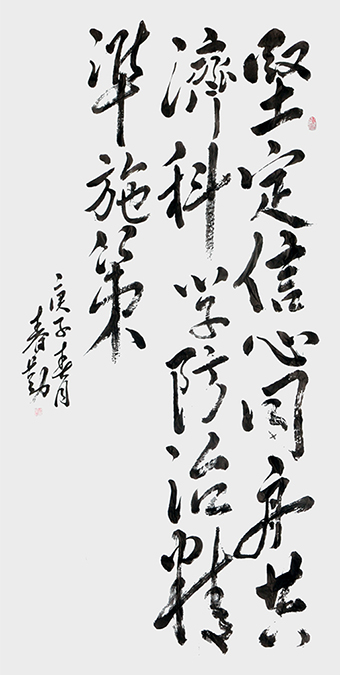 堅定信心同舟共
濟科学防治精
準施策
庚子春月
春勤